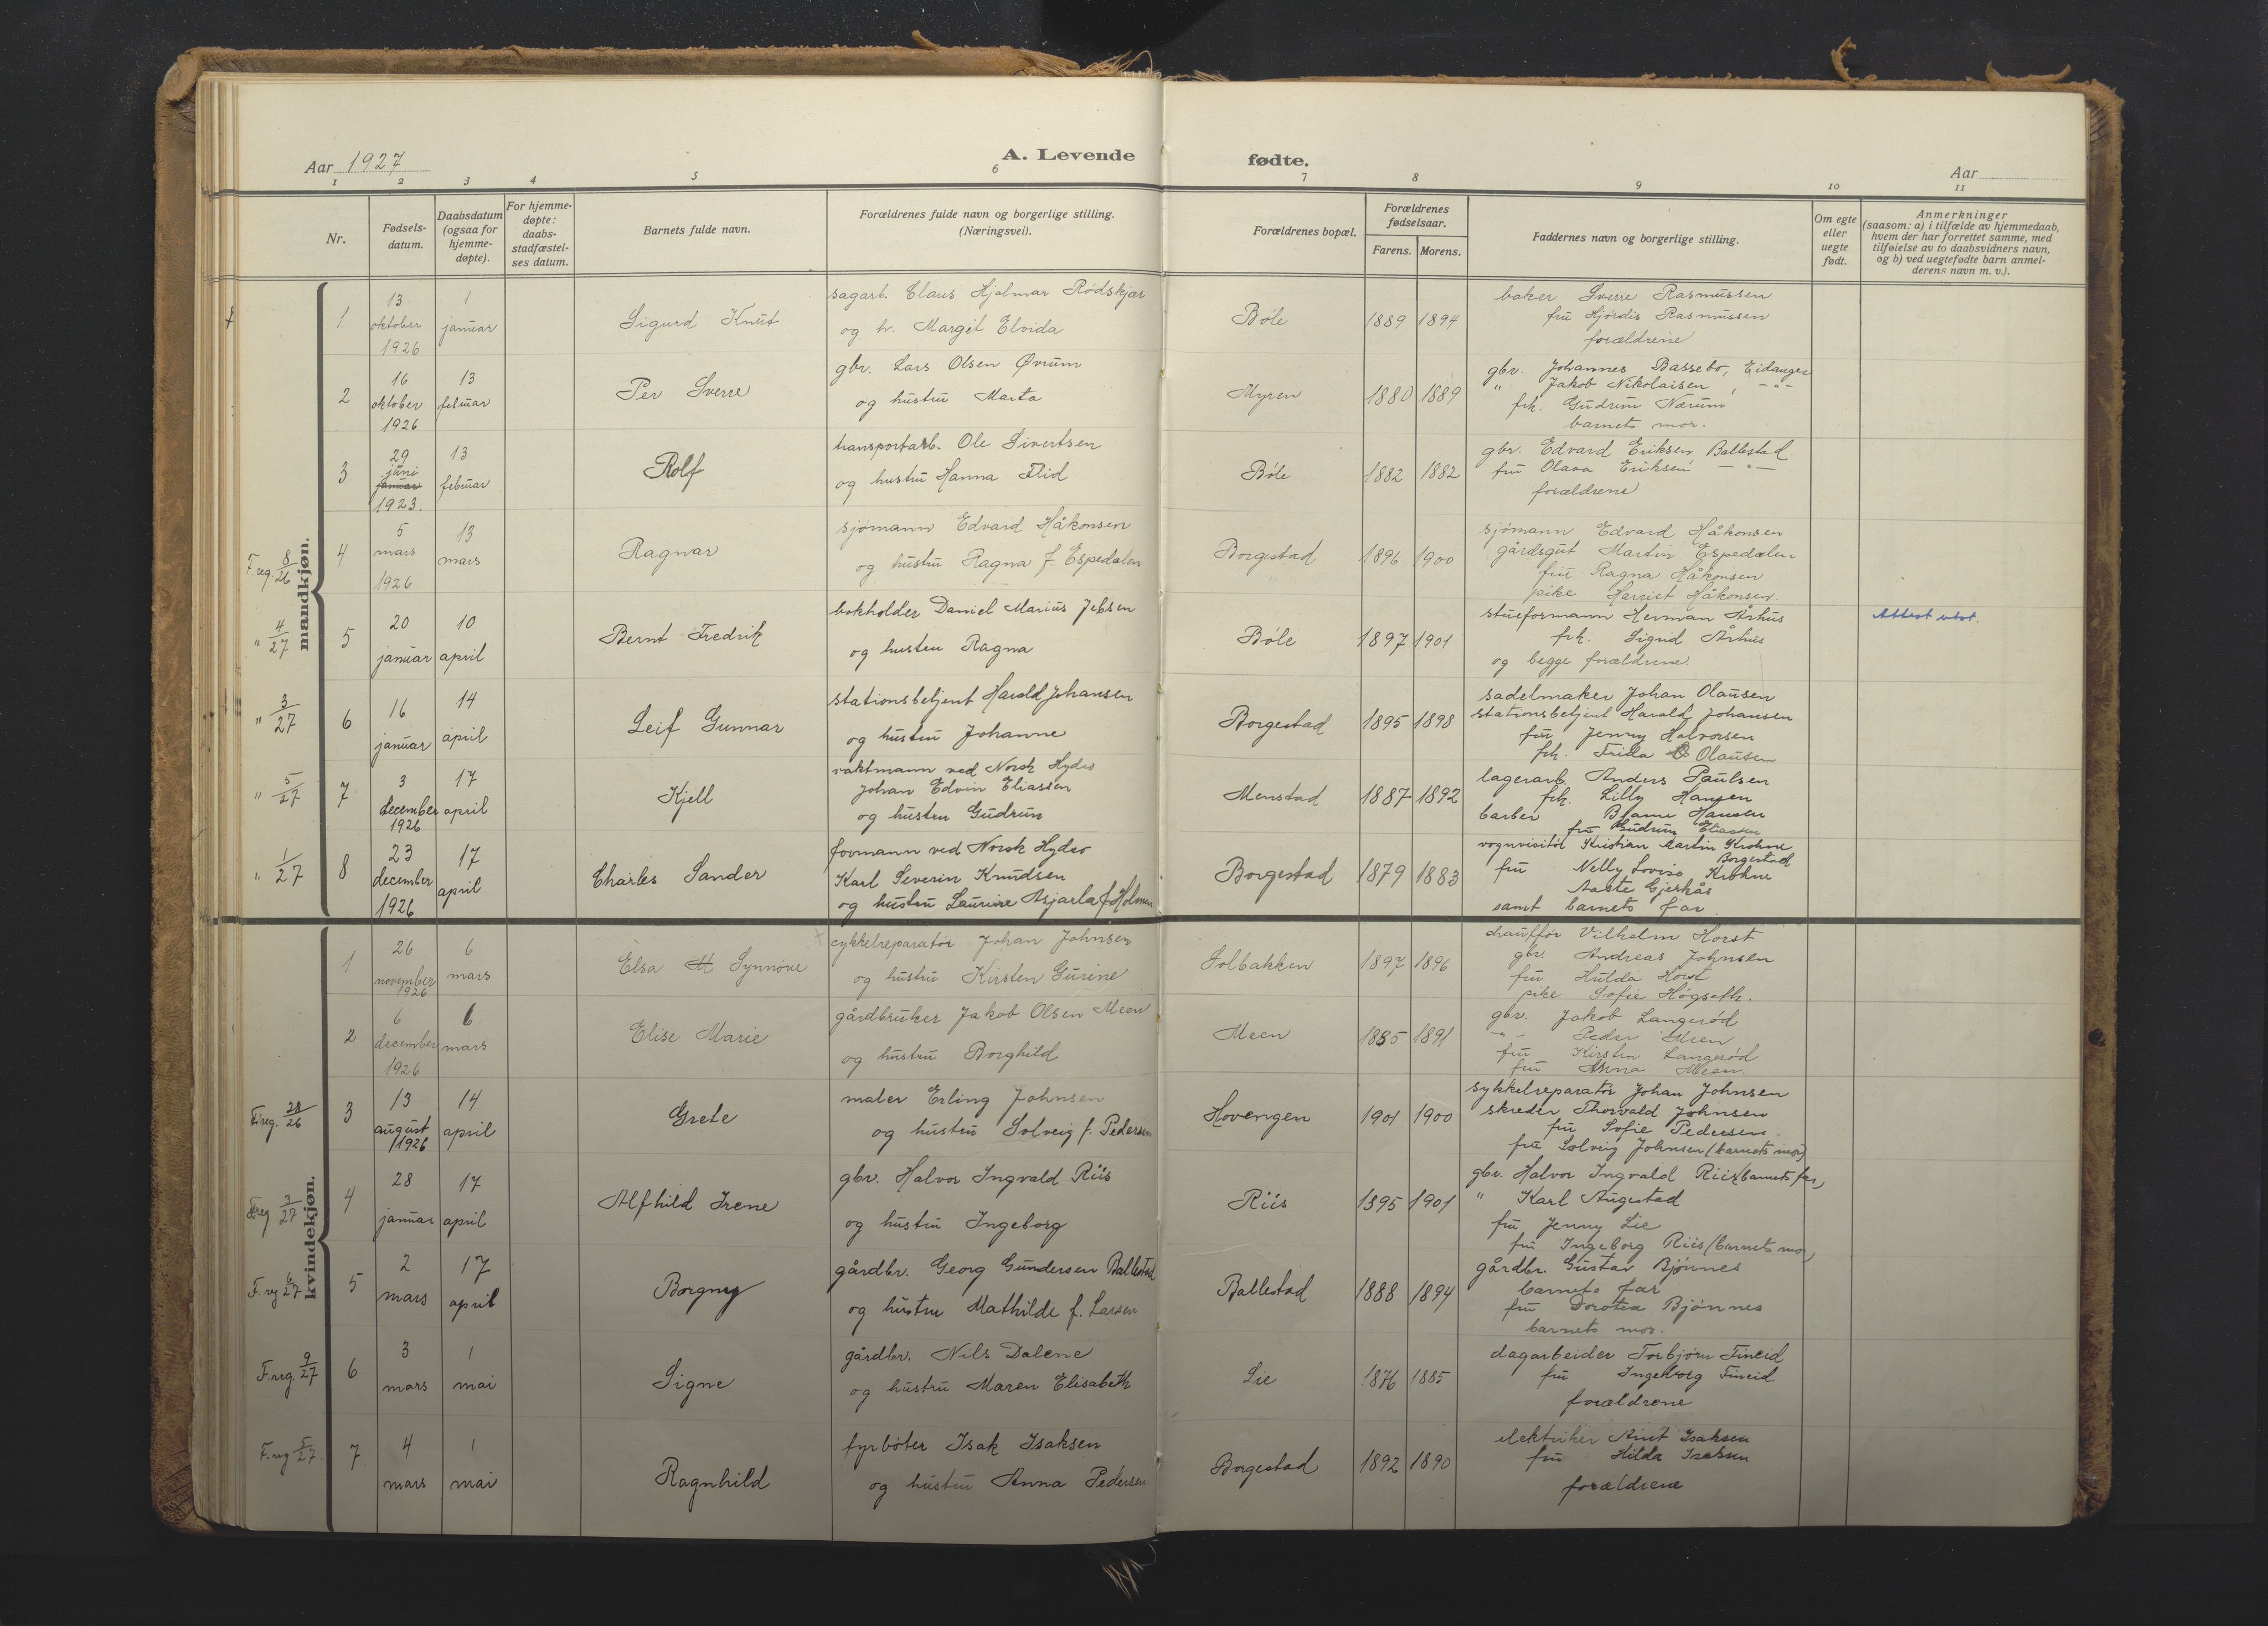 Aar 1927
A. Levende fødte.
Aar
1 2 3 4 5 6 7 8 9 10 11
Nr.
Fødsels-datum.
Daabsdatum (ogsaa for hjemme-døpte).
For hjemme-døpte: daabs-stadfæstel-ses datum.
Barnets fulde navn.
Forældrenes fulde navn og borgerlige stilling. (Næringsvei).
Forældrenes bopæl.
Forældrenes fødselsaar.
Farens. Morens.
Faddernes navn og borgerlige stilling.
Om egte eller uegte født.
Anmerkninger
(saasom: a) i tilfælde av hjemmedaab,
hvem der har forrettet samme, med
tilføielse av to daabsvidners navn,
og b) ved uegtefødte barn anmel-
derens navn m. v.).
mandkjøn.
1. 13 oktober 1926
1 januar
Sigurd Knut
sagarb. Claus Hjalmar Rødskjær
og h. Margit Elvida
Bøle 1889 1894
baker Sverre Rasmussen
fru Hjørdis Rasmussen
forældrene
2 16 oktober 1926
13 februar
Per Sverre
gbr. Lars Olsen Øvrum
og hustru Marta
Myren 1880 1889
gbr. Johannes Bassebo, Eidanger
" Jakob Nikolaisen, -"-
frk. Gudrun Nærum
barnets mor.
3 29 juni januar 1923.
13 februar
Rolf
transportarb. Ole Sivertsen
og hustru Hanna Flid
Bøle 1882 1882
gbr. Edvard Eriksen Ballestad
fru Olava Eriksen -"-
forældrene
F.reg. 8/26
4 5 mars 1926
13 mars
Ragnar
sjømann Edvard Håkonsen
og hustru Ragna f. Espedalen
Borgestad 1896 1900
sjømann Edvard Håkonsen
gårdsgut Martin Espedalen
fru Ragna Håkonsen
pike Harriet Håkonsen.
" 4/27
5 20 januar
10 april
Bernt Fredrik
bokholder Daniel Marius Jebsen
og hustru Ragna
Bøle 1897 1901
stueformann Herman Århus
frk. Sigrid Århus
og begge forældrene.
Attest utst.
" 3/27
6 16 januar
14 april
Leif Gunnar
stationsbetjent Harald Johansen
og hustru Johanne
Borgestad 1895 1898
sadelmaker Johan Olausen
stationsbetjent Harald Johansen
fru Jenny Halvorsen
frk. Frida Olausen
" 5/27
7 3 december 1926
17 april
Kjell
vaktmann ved Norsk Hydro
Johan Edvin Eliassen
og hustru Gudrun
Menstad 1887 1892
lagerarb. Anders Paulsen
frk. Lilly Hansen
barber Hansen
fru Gudrun Eliassen
" 1/27
8 23 december 1926
17 april
Charles Sander
formann ved Norsk Hydro
Karl Severin Knudsen
og hustru Laurine Asjarla f. Holmen
Borgestad 1879 1883
vognvisitør Kristian Martin Krohne
Borgestad
fru Nelly Lovise Krohne
Aaste Gjerkås
samt barnets far
kvindekjøn.
1 26 november 1926
6 mars
Elsa M Synnøve
cykkelreparatør Johan Johnsen
og hustru Kirsten Gurine
Solbakken 1897 1896
chauffør Vilhelm Horst
gbr. Andreas Johnsen
fru Hulda Horst
pike Sofie Høgseth.
2 6 december 1926
6 mars
Elise Marie
gårdbruker Jakob Olsen Meen
og hustru Borghild
Meen 1885 1891
gbr. Jakob Langerød
-"- Peder Meen
fru Kirsten Langerød
fru Anna Meen.
F.reg. 28/26
3 13 august 1926
14 april
Grete
maler Erling Johnsen
og hustru Solveig f. Pedersen
Hovengen 1901 1900
sykkelreparatør Johan Johnsen
skreder Thorvald Johnsen
fru Sofie Pedersen.
fru Solveig Johnsen (barnets mor)
F.reg 3/27
4 28 januar
17 april
Alfhild Irene
gbr. Halvor Ingvald Riis
og hustru Ingeborg
Riis 1895 1901
gbr. Halvor Ingvald Riis (barnets far)
" Karl Augestad
fru Jenny Lie
fru Ingeborg Riis (barnets mor)
F.reg 6/27
5 2 mars
17 april
Borgny
gårdbr. Georg Gundersen Ballestad
og hustru Mathilde f. Larsen
Ballestad 1888 1894
gårdbr. Gustav Bjønnes
barnets far
fru Dorotea Bjønnes
barnets mor.
F.reg. 9/27
6 3 mars
1 mai
Signe
gårdbr. Nils Dalene
og hustru Maren Elisabeth
Lie 1876 1885
dagarbeider Torbjørn Fineid
fru Ingeborg Fineid
forældrene
F.reg 5/27.
7 4 mars
1 mai
Ragnhild
fyrbøter Isak Isaksen
og hustru Anna Pedersen
Borgestad 1892 1890
elektriker Isaksen
fru Hilda Isaksen
forældrene